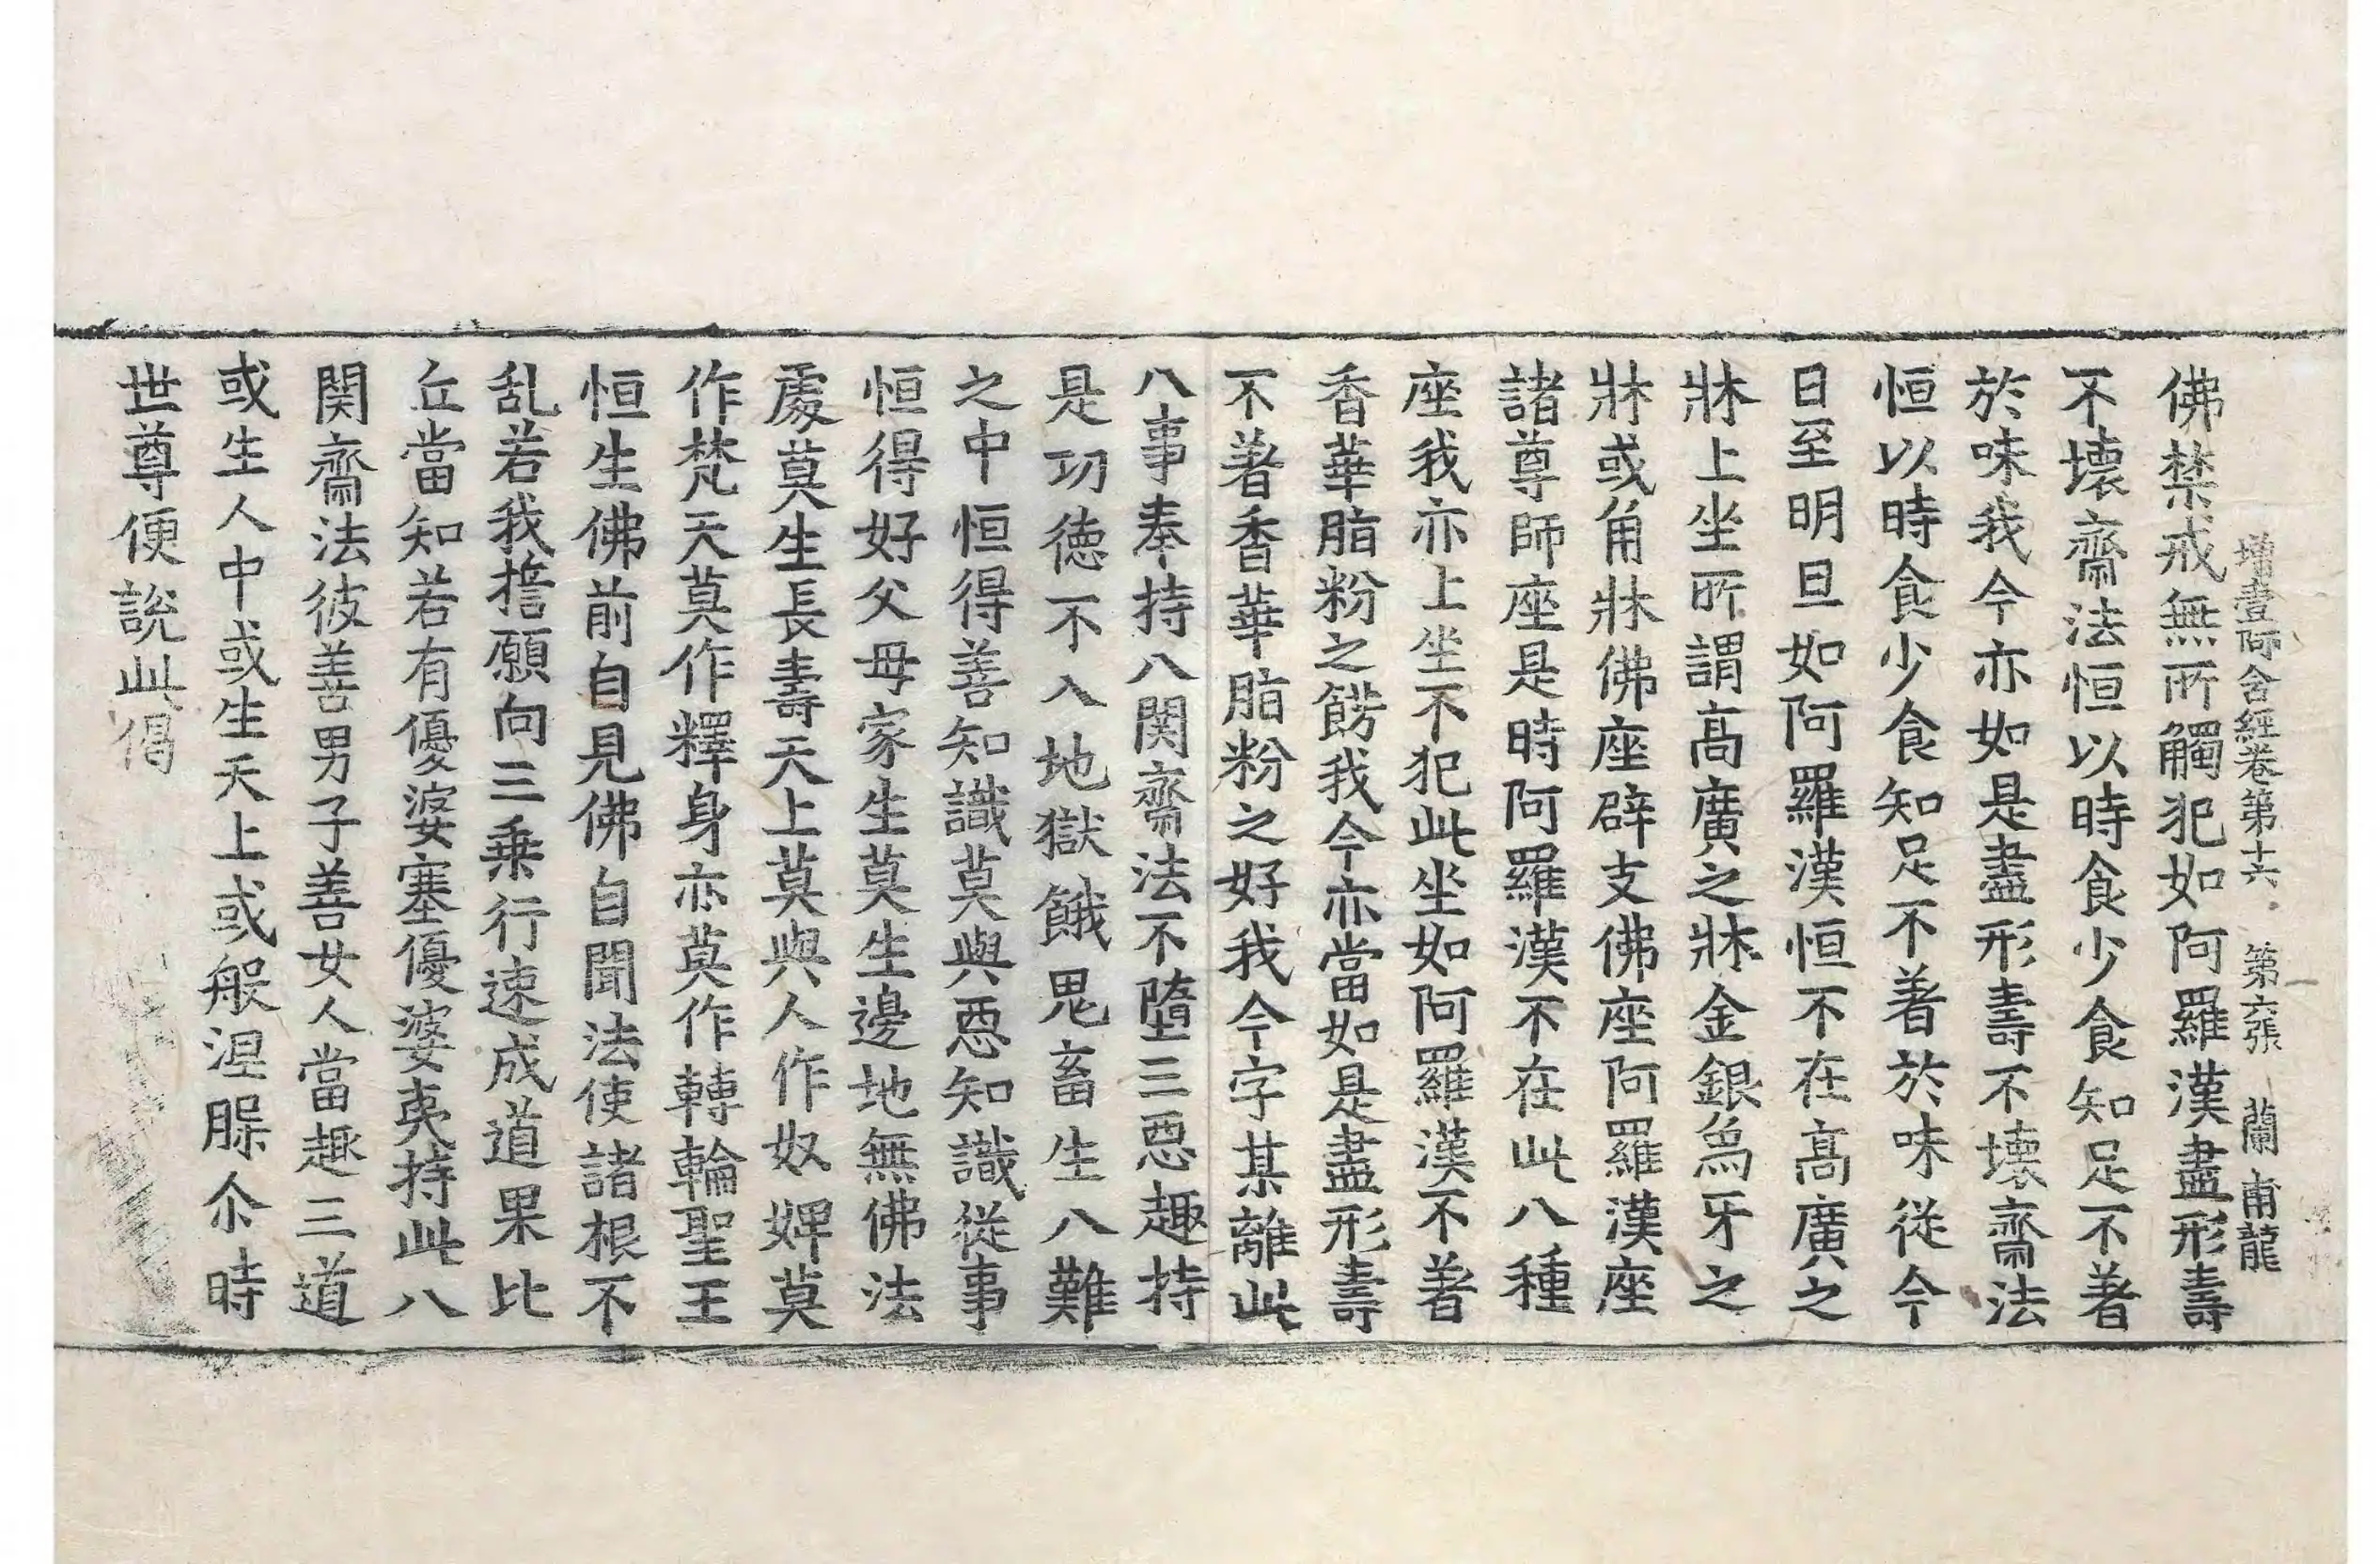 增壹阿含經卷第十六 第六張 蘭 甫龍
佛禁戒無所觸犯如阿羅漢盡形壽
不壞齋法恒以時食少食知足不著
於味我今亦如是盡形壽不壞齋法
恒以時食少食知足不著於味從今
日至明旦如阿羅漢恒不在高廣之
牀上坐所謂高廣之牀金銀烏牙之
牀或角牀佛座辟支佛座阿羅漢座
諸尊師座是時阿羅漢不在此八種
座我亦上坐不犯此坐如阿羅漢不著
香華脂粉之餝我今亦當如是盡形壽
不著香華脂粉之好我今字某離此
八事奉持八関齋法不墮三惡趣持
是功德不入地獄餓鬼畜生八難
之中恒得善知識莫與惡知識從事
恒得好父母家生莫生邊地無佛法
處莫生長壽天上莫與人作奴婢莫
作梵天莫作釋身亦莫作轉輪聖王
恒生佛前自見佛自聞法使諸根不
乱若我擔願向三乗行速成道果比
丘當知若有優婆塞優婆夷持此八
関齋法彼善男子善女人當趣三道
或生人中或生天上或般涅𦙁尒時
世尊便說此偈